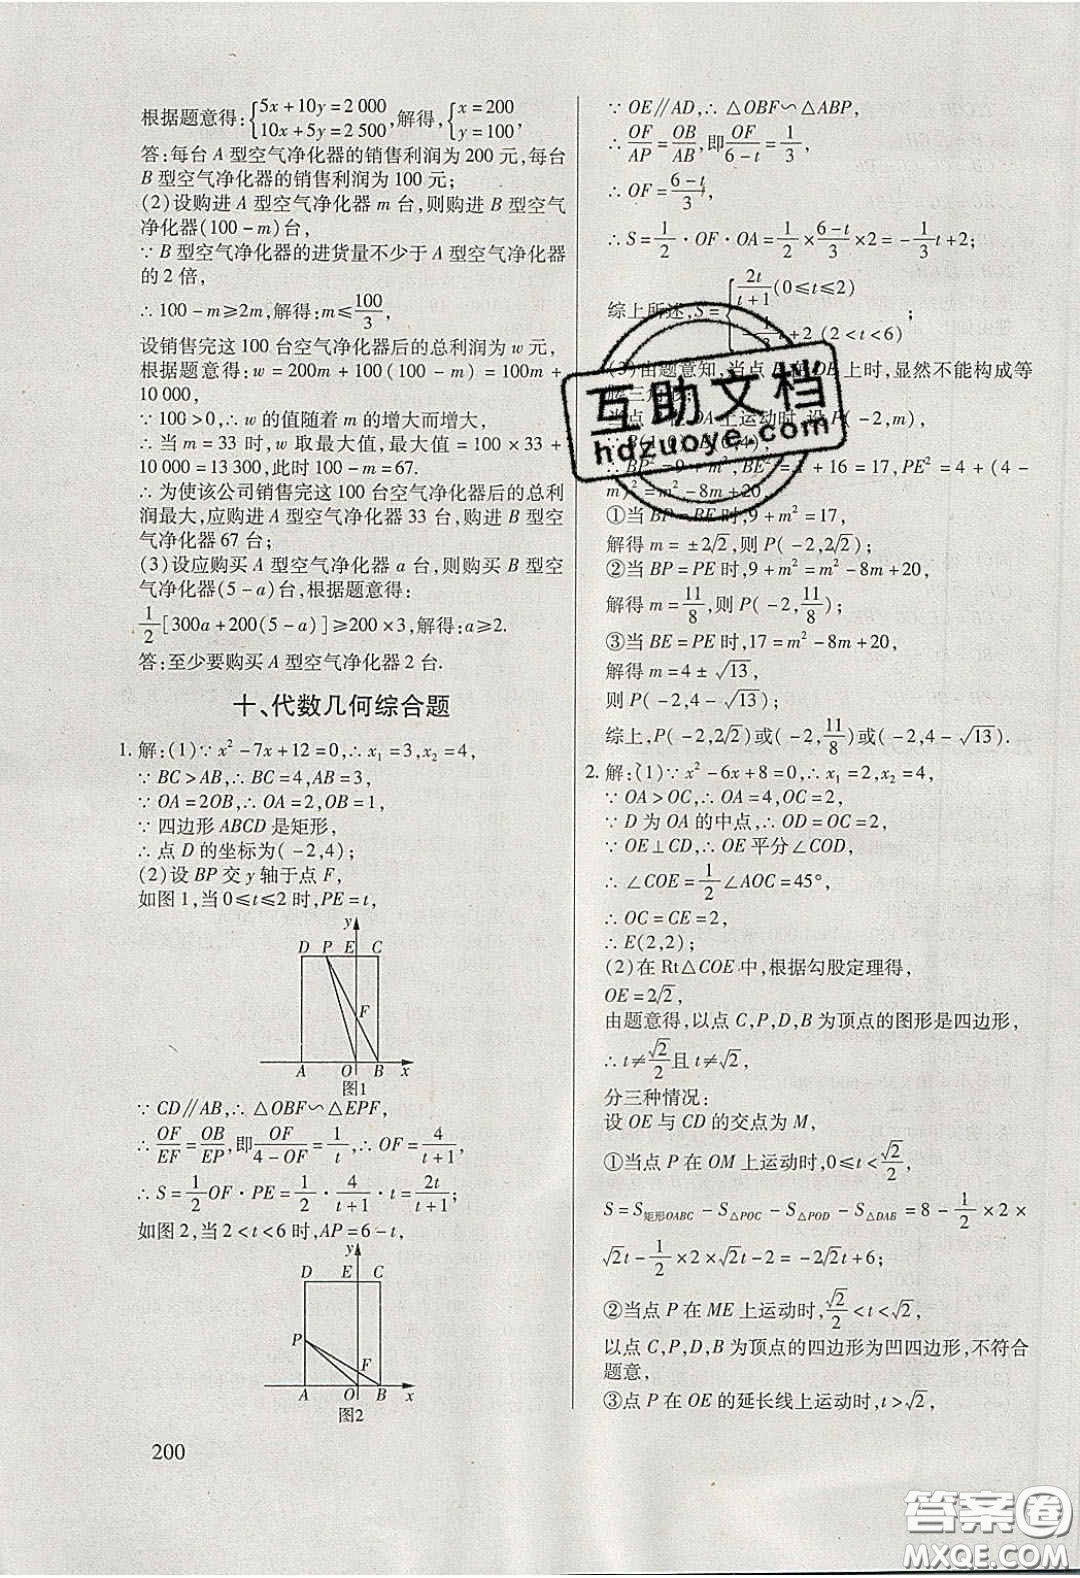 根据题意得:{5x+10y=2 000 10x+5y=2 500,解得,{x=200 y=100,
答:每台 A 型空气净化器的销售利润为 200 元,每台
B 型空气净化器的销售利润为 100 元;
(2)设购进 A 型空气净化器 m 台,则购进 B 型空气
净化器(100-m)台,
∵B 型空气净化器的进货量不少于 A 型空气净化器
的 2 倍,
∴100-m≥2m,解得:m≤100/3,
设销售完这 100 台空气净化器后的总利润为 w 元,
根据题意得:w=200m+100(100-m)=100m+
10 000,
∵100>0,∴w 的值随着 m 的增大而增大,
∴当 m=33 时,w 取最大值,最大值=100×33+
10 000=13 300,此时 100-m=67.
∴为使该公司销售完这 100 台空气净化器后的总利
润最大,应购进 A 型空气净化器 33 台,购进 B 型空
气净化器 67 台;
(3)设应购买 A 型空气净化器 a 台,则购买 B 型空
气净化器(5-a)台,根据题意得:
1/2[300a+200(5-a)]≥200×3,解得:a≥2.
答:至少要购买 A 型空气净化器 2 台.
十、代数几何综合题
1. 解:(1)∵x²-7x+12=0,∴x₁=3,x₂=4,
∵BC>AB,∴BC=4,AB=3,
∵OA=2OB,∴OA=2,OB=1,
∵四边形 ABCD 是矩形,
∴点 D 的坐标为(-2,4);
(2)设 BP 交 y 轴于点 F,
如图 1,当 0≤t≤2 时,PE=t,
y
D P E C
F
A O B x
图1
∵CD∥AB,∴△OBF∽△EPF,
∴OF/EF=OB/EP,即OF/(4-OF)=1/t,∴OF=4/(t+1),
∴S=1/2OF·PE=1/2·4/(t+1)·t=2t/(t+1);
如图 2,当 2<t<6 时,AP=6-t,
y
D E C
P
F
A O B x
图2
200
∵OE∥AD,∴△OBF∽△ABP,
∴OF/AP=OB/AB,即OF/(6-t)=1/3,
∴OF=(6-t)/3,
∴S=1/2·OF·OA=1/2×(6-t)/3×2=-1/3t+2;
综上所述,S={2t/(t+1)(0≤t≤2) -1/3t+2 (2<t<6);
(3)由题意知,当点 P 在 DE 上时,显然不能构成等
腰三角形;
当点 P 在 OA 上运动时,设 P(-2,m),
∵B(1,0),E(0,4),
∴BP²=9+m²,BE²=1+16=17,PE²=4+(4-
m)²=m²-8m+20,
①当 BP=BE 时,9+m²=17,
解得 m=±2√2,则 P(-2,2√2);
②当 BP=PE 时,9+m²=m²-8m+20,
解得 m=11/8,则 P(-2,11/8);
③当 BE=PE 时,17=m²-8m+20,
解得 m=4±√13,
则 P(-2,4-√13);
综上,P(-2,2√2)或(-2,11/8)或(-2,4-√13).
2. 解:(1)∵x²-6x+8=0,∴x₁=2,x₂=4,
∵OA>OC,∴OA=4,OC=2,
∵D 为 OA 的中点,∴OD=OC=2,
∵OE⊥CD,∴OE 平分∠COD,
∴∠COE=1/2∠AOC=45°,
∴OC=CE=2,
∴E(2,2);
(2)在 Rt△COE 中,根据勾股定理得,
OE=2√2,
由题意得,以点 C,P,D,B 为顶点的图形是四边形,
∴t≠√2/2且 t≠√2,
分三种情况:
设 OE 与 CD 的交点为 M,
①当点 P 在 OM 上运动时,0≤t<√2/2,
S=S矩形OABC-S△POC-S△POD-S△DAB=8-1/2×2×
√2t-1/2×2×√2t-2=-2√2t+6;
②当点 P 在 ME 上运动时,√2/2<t<√2,
以点 C,P,D,B 为顶点的四边形为凹四边形,不符合
题意,
③点 P 在 OE 的延长线上运动时,t>√2,
互助文档
hdzuoye.com
答案圈
MXQE.COM